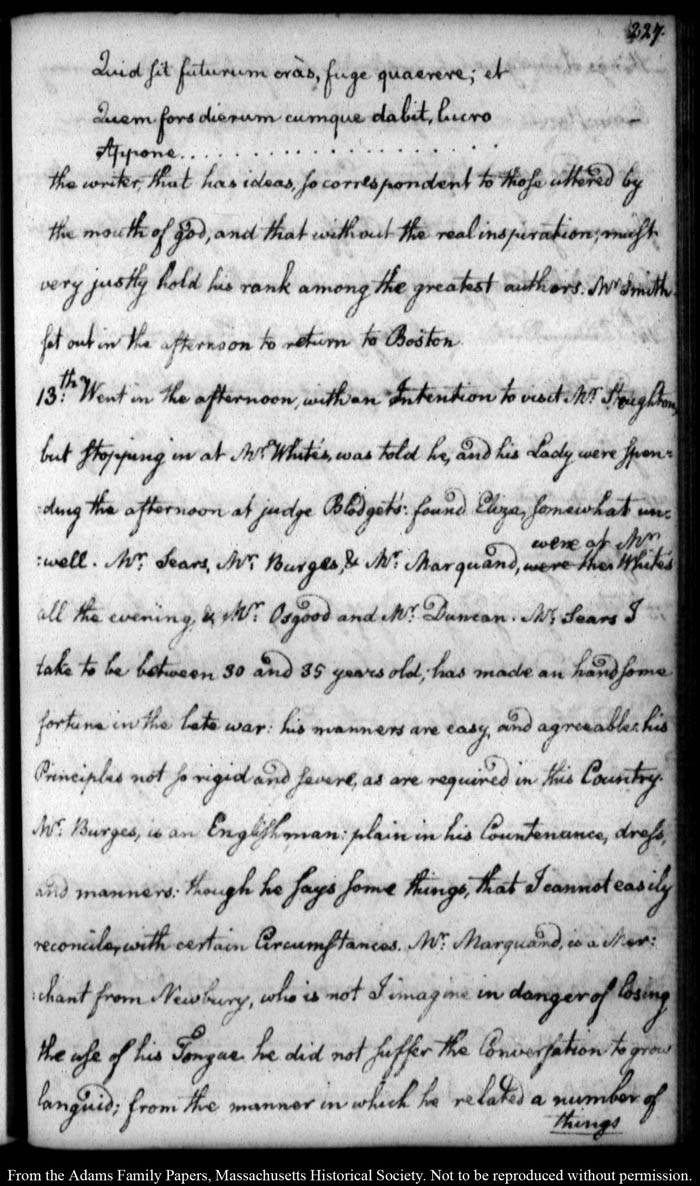 227.
Quid sit futurum cràs, fuge quaerere; et
Quem fors dierum cumque dabit, lucro
Appone . . . . . . . . . . . . . . . . . . . .
the writer, that has ideas, so correspondent to those uttered by
the mouth of god, and that without the real inspiration; must
very justly hold his rank among the greatest authors. Mr. Smith
set out in the afternoon to return to Boston.
13th. Went in the afternoon, with an Intention to visit Mr. Stoughton,
but stopping in at Mr. White's, was told he, and his Lady were spen-
:ding the afternoon at judge Blodget's: found Eliza, somewhat un:
were at Mr.
:well. Mr. Sears, Mr. Burges, & Mr. Marquand, were ther White's
all the evening, & Mr. Osgood and Mr. Duncan. Mr. Sears I
take to be between 30 and 35 years old; has made an handsome
fortune in the late war: his manners are easy, and agreeable: his
Principles not so rigid and severe, as are required in this Country.
Mr. Burges, is an Englishman: plain in his Countenance, dress,
and manners: though he says some things, that I cannot easily
reconcile, with certain Circumstances. Mr. Marquand, is a Mer:
:chant from Newbury, who is not I imagine in danger of losing
the use of his Tongue he did not suffer the Conversation to grow
languid; from the manner in which he related a number of
things
From the Adams Family Papers, Massachusetts Historical Society. Not to be reproduced without permission.